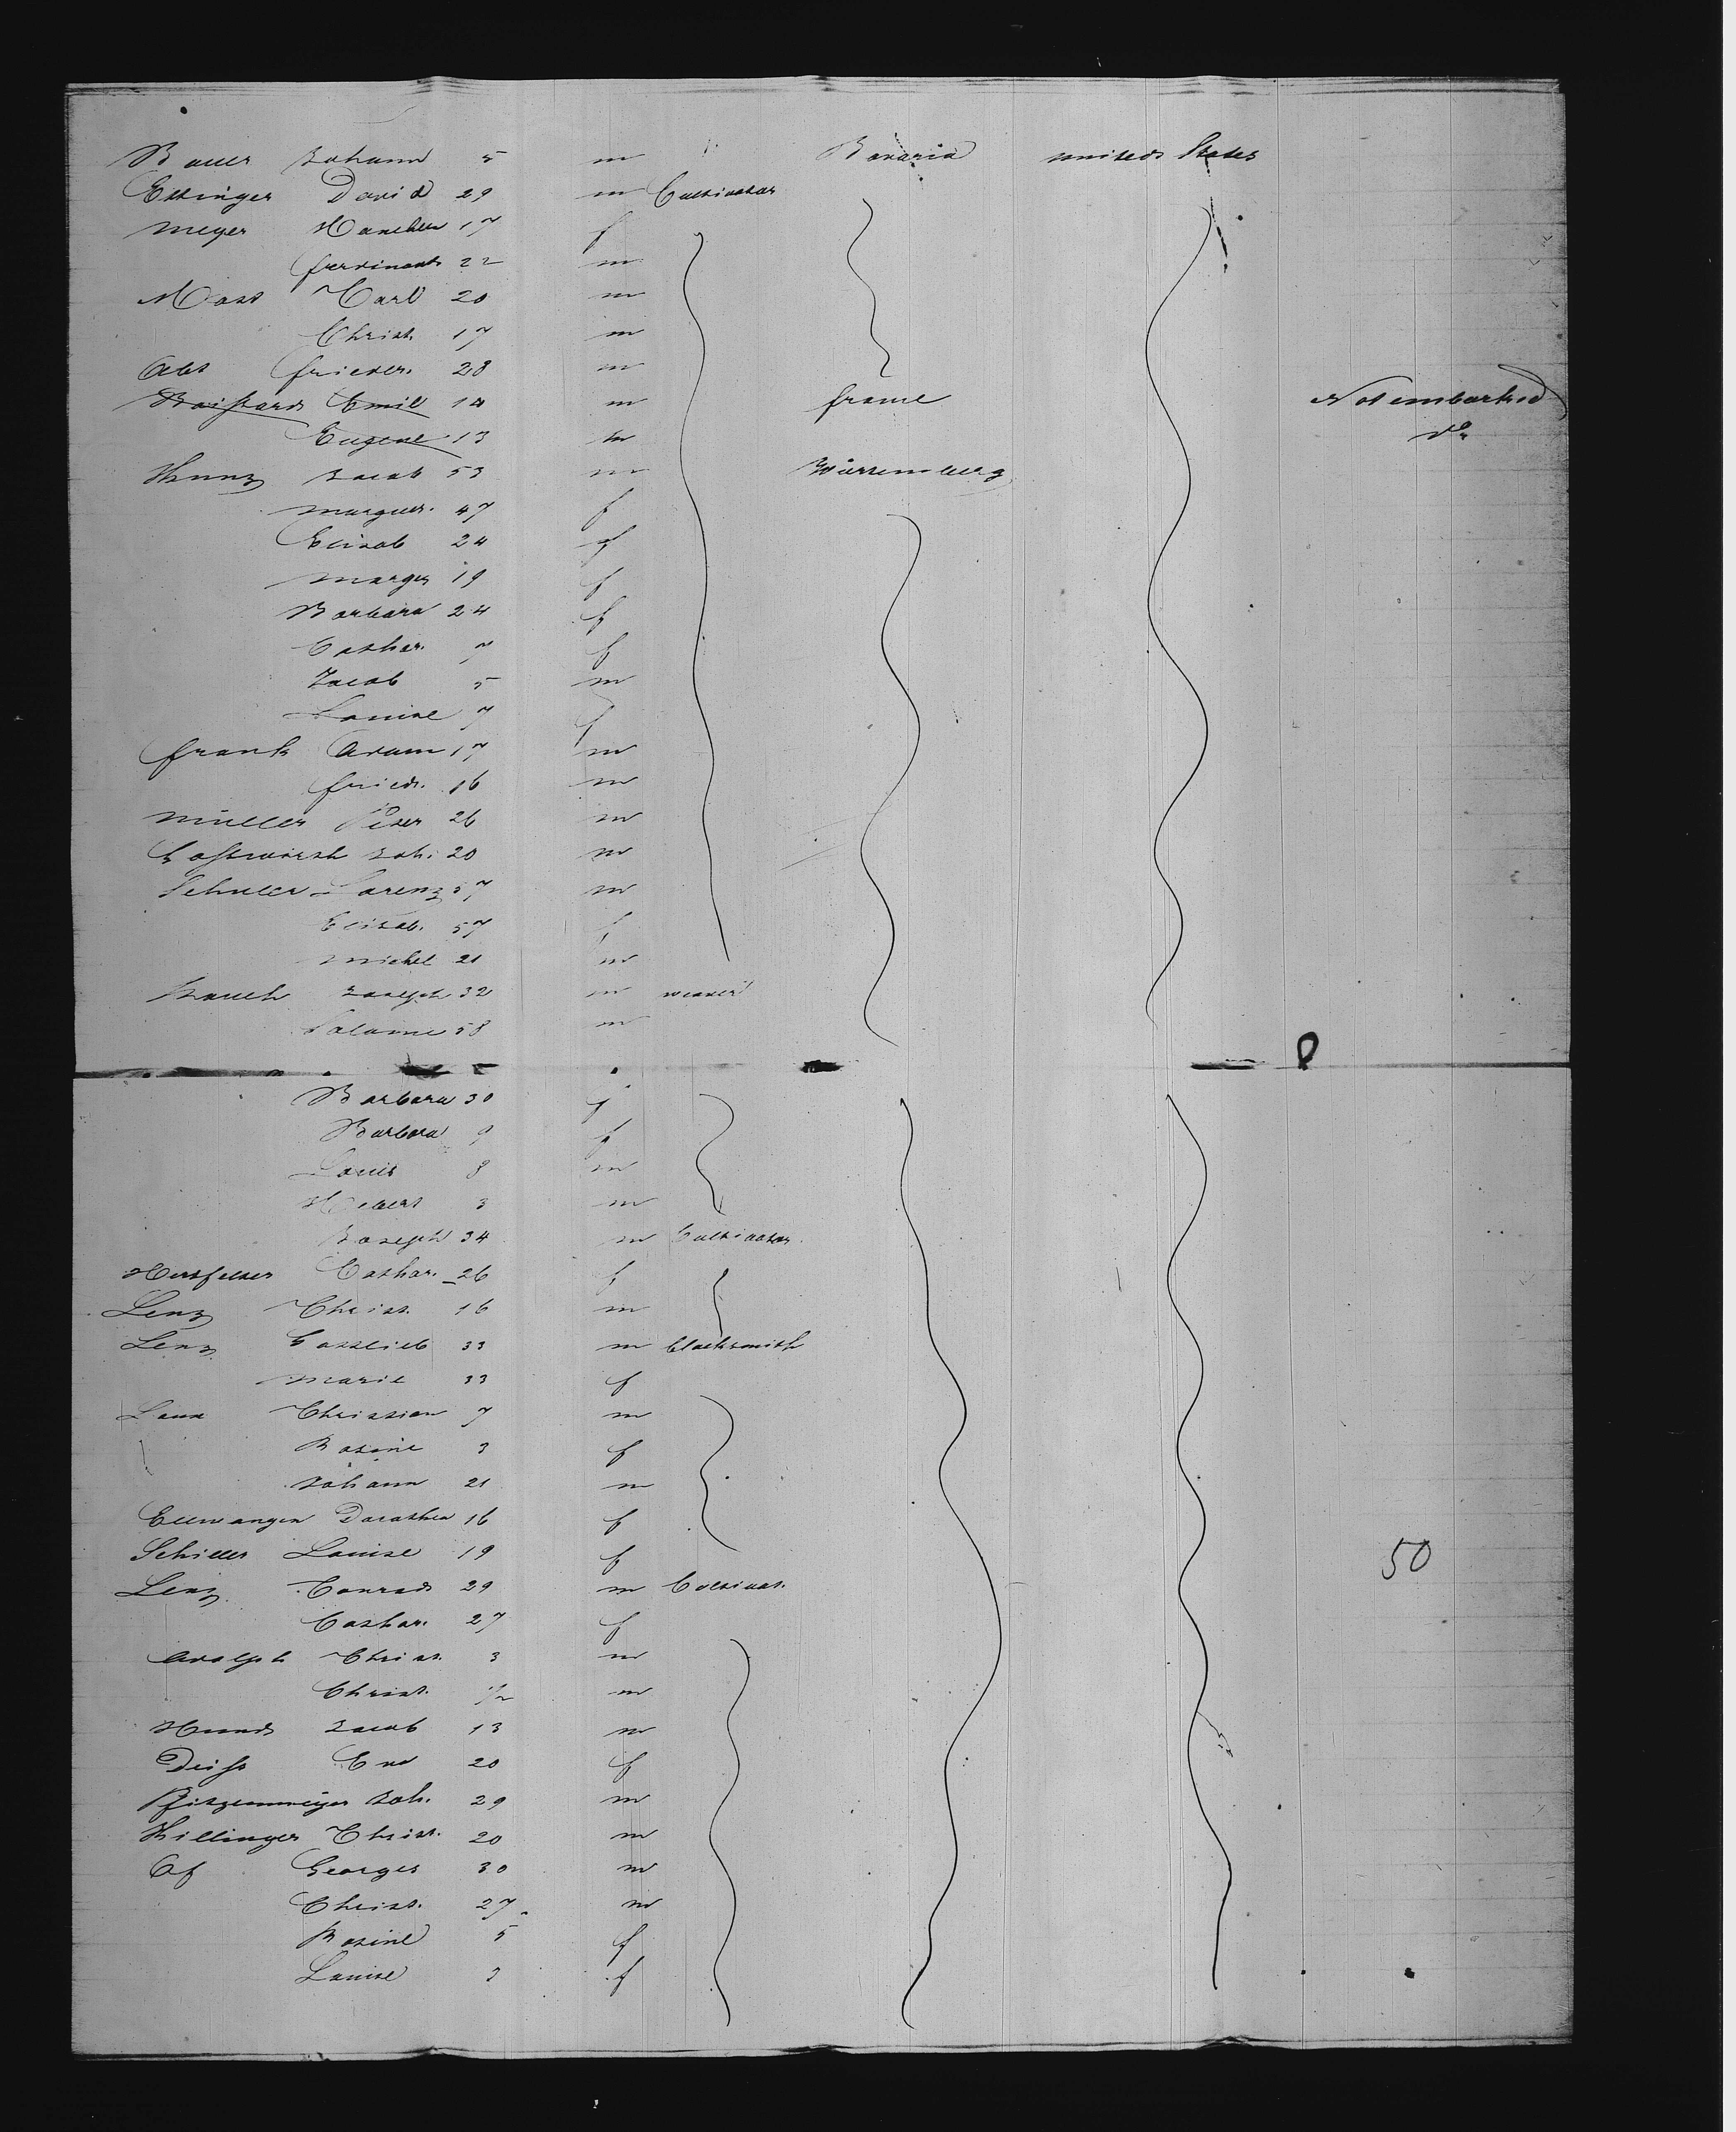 Bauer Johann 5 m Bavaria united States
Ettinger David 29 m Cultivator
Meyer Hanchen 17 f
Ferdinant 22 m
Mast Carl 20 m
Christ. 17 m
Abt Frieder. 28 m
Emil 14 m France Not embarked
Eugene 13 m do
Kunz Jacob 53 m Würtemberg
Marguer. 47 f
Elisab 24 f
Margr 19 f
Barbara 24 f
Cathar. 7 f
Jacob 5 m
Louise 7 f
Frank Adam 17 m
Fried. 16 m
Müller Peter 26 m
Gastwirth Joh. 20 m
Schuller Lorenz 57 m
Elisab. 57 f
Michel 21 m
Bauch Joseph 32 m weaver
Salome 58 m
Barbara 30 f
Barbara 9 f
Louis 8 m
3 m
Joseph 34 m Cultivator
Cathar. 26 f
Lenz Christ. 16 m
Lenz Gottlieb 33 m blacksmith
Marie 33 f
Christian 7 m
Rosine 3 f
Johann 21 m
Ellwangen Dorothea 16 f
Schiller Louise 19 f
50
Lenz Conrad 29 m Cultivat.
Cathar. 27 f
Adolph Christ. 3 m
Christ. 1/2 m
Hund Jacob 13 m
Deiss Eva 20 f
Pfizenmeyer Joh. 29 m
Killinger Christ. 20 m
Of Georges 30 m
Christ. 27. m
Rosine 5 f
Louise 3 f